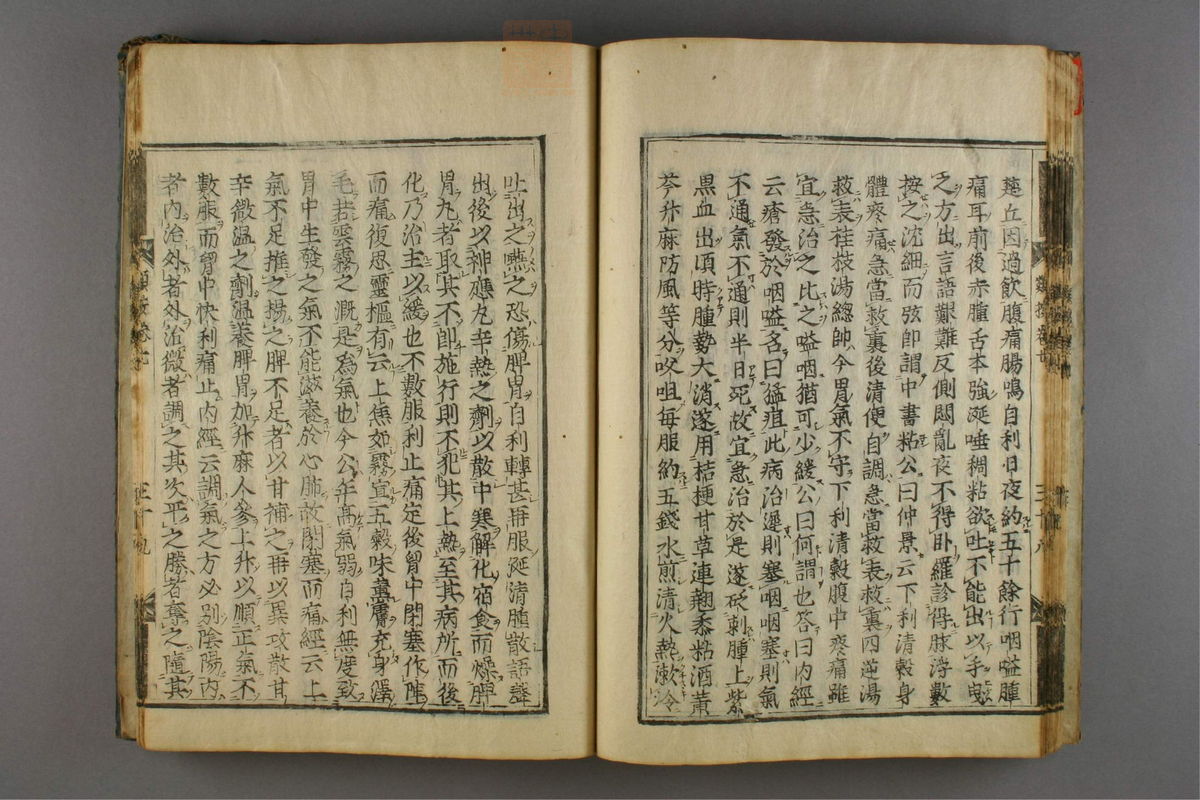 筵丘因過飲腹痛腸鳴自利日夜約五十餘行咽嗌腫
痛耳前後赤腫舌本強涎唾稠粘欲吐不能出以手曳
之方出言語艱難反側悶亂夜不得臥羅診得脉浮數
按之沈細而弦即謂中書粘公曰仲景云下利清穀身
體疼痛急當救裏後清便自調急當救表救裏四逆湯
救表桂枝湯總帥今胃氣不守下利清穀腹中疼痛雖
宜急治之比之嗌咽猶可少緩公曰何謂也答曰内經
云瘡發於咽嗌名曰猛疽此病治遲則塞咽咽塞則氣
不通氣不通則半日死故宜急治於是遂砭刺腫上紫
黒血出頃時腫勢大消遂用桔梗甘草連翹黍粘酒黄
芩升麻防風等分㕮咀毎服約五錢水煎清火熱漱冷
吐出之嚥之恐傷脾胃自利轉甚再服涎清腫散語聲
出後以神應丸辛熱之劑以散中寒解化宿食而燥脾
胃丸者取其不即施行則不犯其上熱至其病所而後
化乃治主以緩也不數服利止痛定後胃中閉塞作陣
而痛復思靈樞有云上焦如霧宜五穀味薫膚充身澤
毛若雲霧之漑是為氣也今公年髙氣弱自利無度致
胃中生發之氣不能滋養於心肺故閉塞而痛經云上
氣不足推之揚之脾不足者以甘補之再以異攻散甘
辛微温之劑温養脾胃加升麻人參上升以順正氣不
數服而胷中快利痛止内經云調氣之方必別陰陽内
者内治外者外治微者調之其次平之勝者奪之隨其